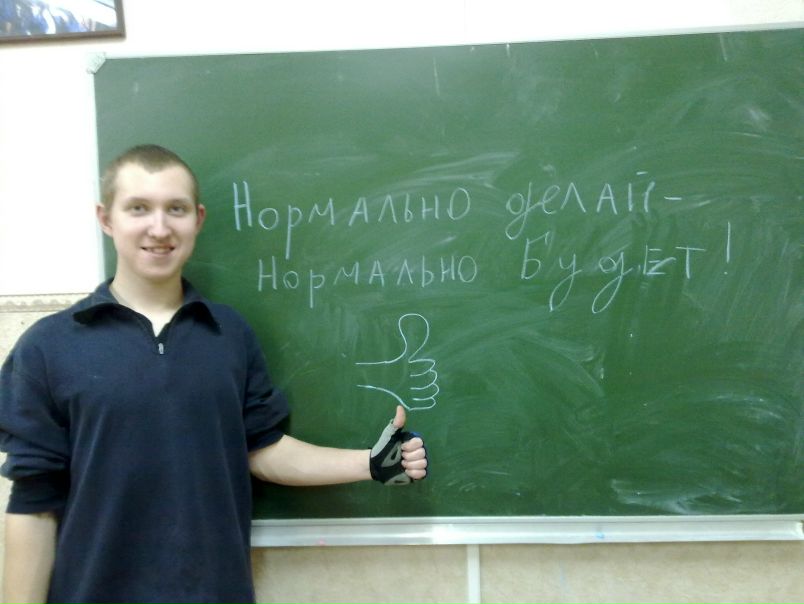 Нормально делай -
нормально будет!